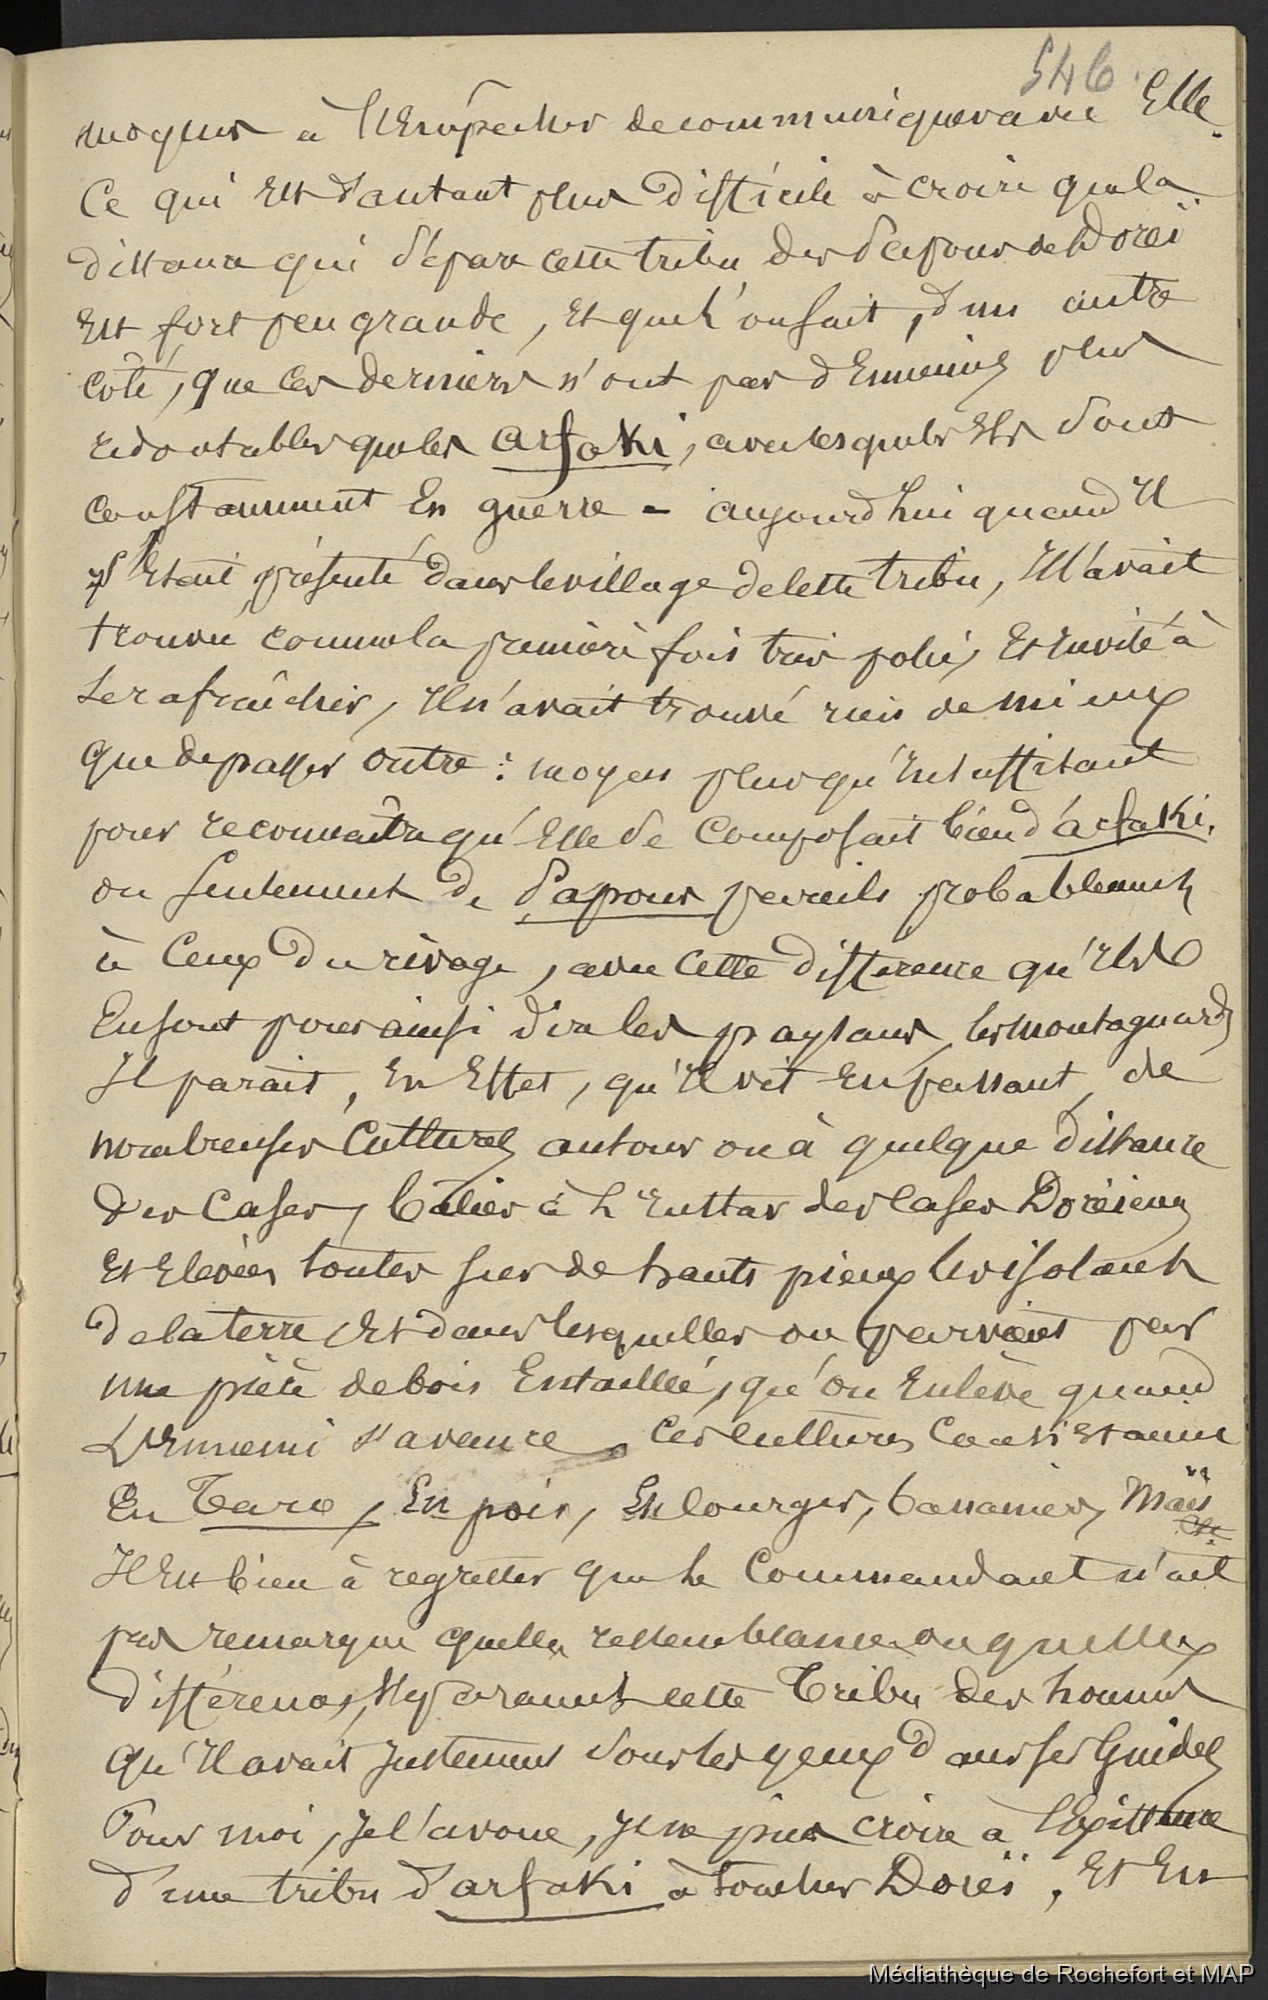 546.
moquer à l'Empêcher de communiquer avec Elle.
Ce qui Est d'autant plus difficile à croire que la
distance qui sépare cette tribu des papous de Doreï
Est fort peu grande, Et que l'on sait, d'un autre
côté, que ces derniers n'ont pas d'Ennemis plus
redoutables que les arfaki, avec lesquels Ils sont
constamment En guerre - aujourd'hui quand Il
s'Etait présenté dans le village de cette tribu, Il l'avait
trouvée comme la première fois très polie, Et Invité à
se rafraîchir, Il n'avait trouvé rien de mieux
que de passer outre : moyen plus qu'Insuffisant
pour reconnaître qu'Elle se composait bien d'arfaki,
ou seulement de papous pareils probablement
à Ceux du rivage, avec cette différence qu'Ils
En sont pour ainsi dire les paysans, les montagnards
Il parait, En Effet, qu'Il vit En passant, de
nombreuses Cultures autour ou à quelque distance
des Cases, bâties à l'Instar des Cases Doréiennes
Et Elevées toutes sur de hauts pieux les isolant
de la terre, Et dans lesquelles on parvient par
une pièce de bois Entaillée, qu'on Enlève quand
L'Ennemi s'avance. Ces cultures Consistaient
En Taro, En pois, En Courges, bananiers, Maïs
&c.
Il Est bien à regretter que le Commandant n'ait
pas remarqué quelles ressemblances ou quelles
différences, Il y a avait cette Tribu des hommes
qu'Il avait Justement sous les yeux dans ses Guides
Pour moi, Je l'avoue, Je ne puis croire à l'Existence
d'une tribu d'arfaki à toucher Doreï, Et En
Médiathèque de Rochefort et MAP